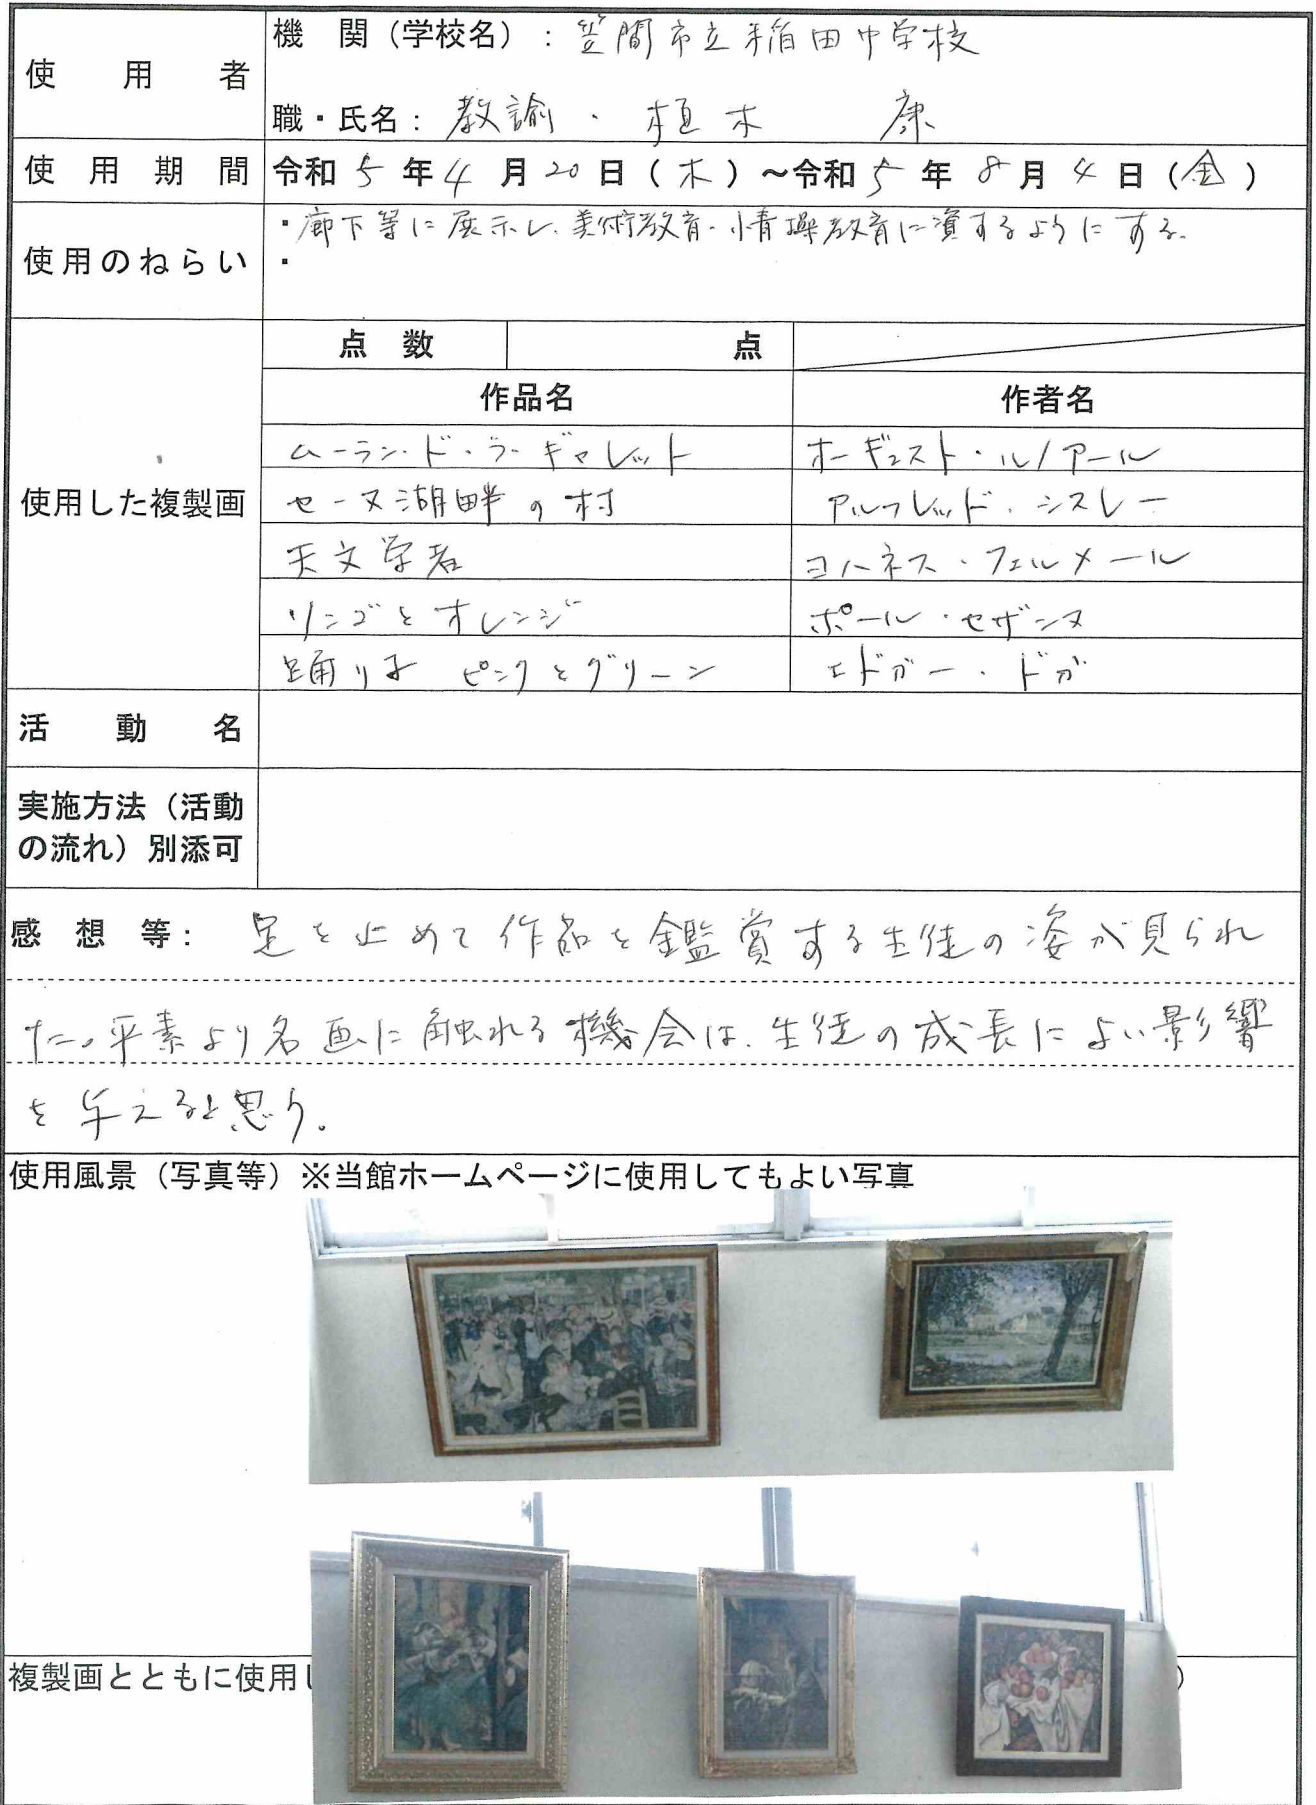 使用者
機　関（学校名）：笠間市立稲田中学校
職・氏名：教諭・植木　康
使用期間
令和5年4月20日（木）～令和5年8月4日（金）
使用のねらい
・廊下等に展示し、美術教育・情操教育に資するようにする。
・
使用した複製画
点　数　　点
作品名　作者名
ムーラン・ド・ラ・ギャレット　オーギュスト・ルノアール
セーヌ湖畔の村　アルフレッド・シスレー
天文学者　ヨハネス・フェルメール
リンゴとオレンジ　ポール・セザンヌ
踊り子　ピンクとグリーン　エドガー・ドガ
活動名
実施方法（活動
の流れ）別添可
感想等：足を止めて作品を鑑賞する生徒の姿が見られ
た。平素より名画に触れる機会は、生徒の成長によい影響
を与えると思う。
使用風景（写真等）※当館ホームページに使用してもよい写真
複製画とともに使用し
）